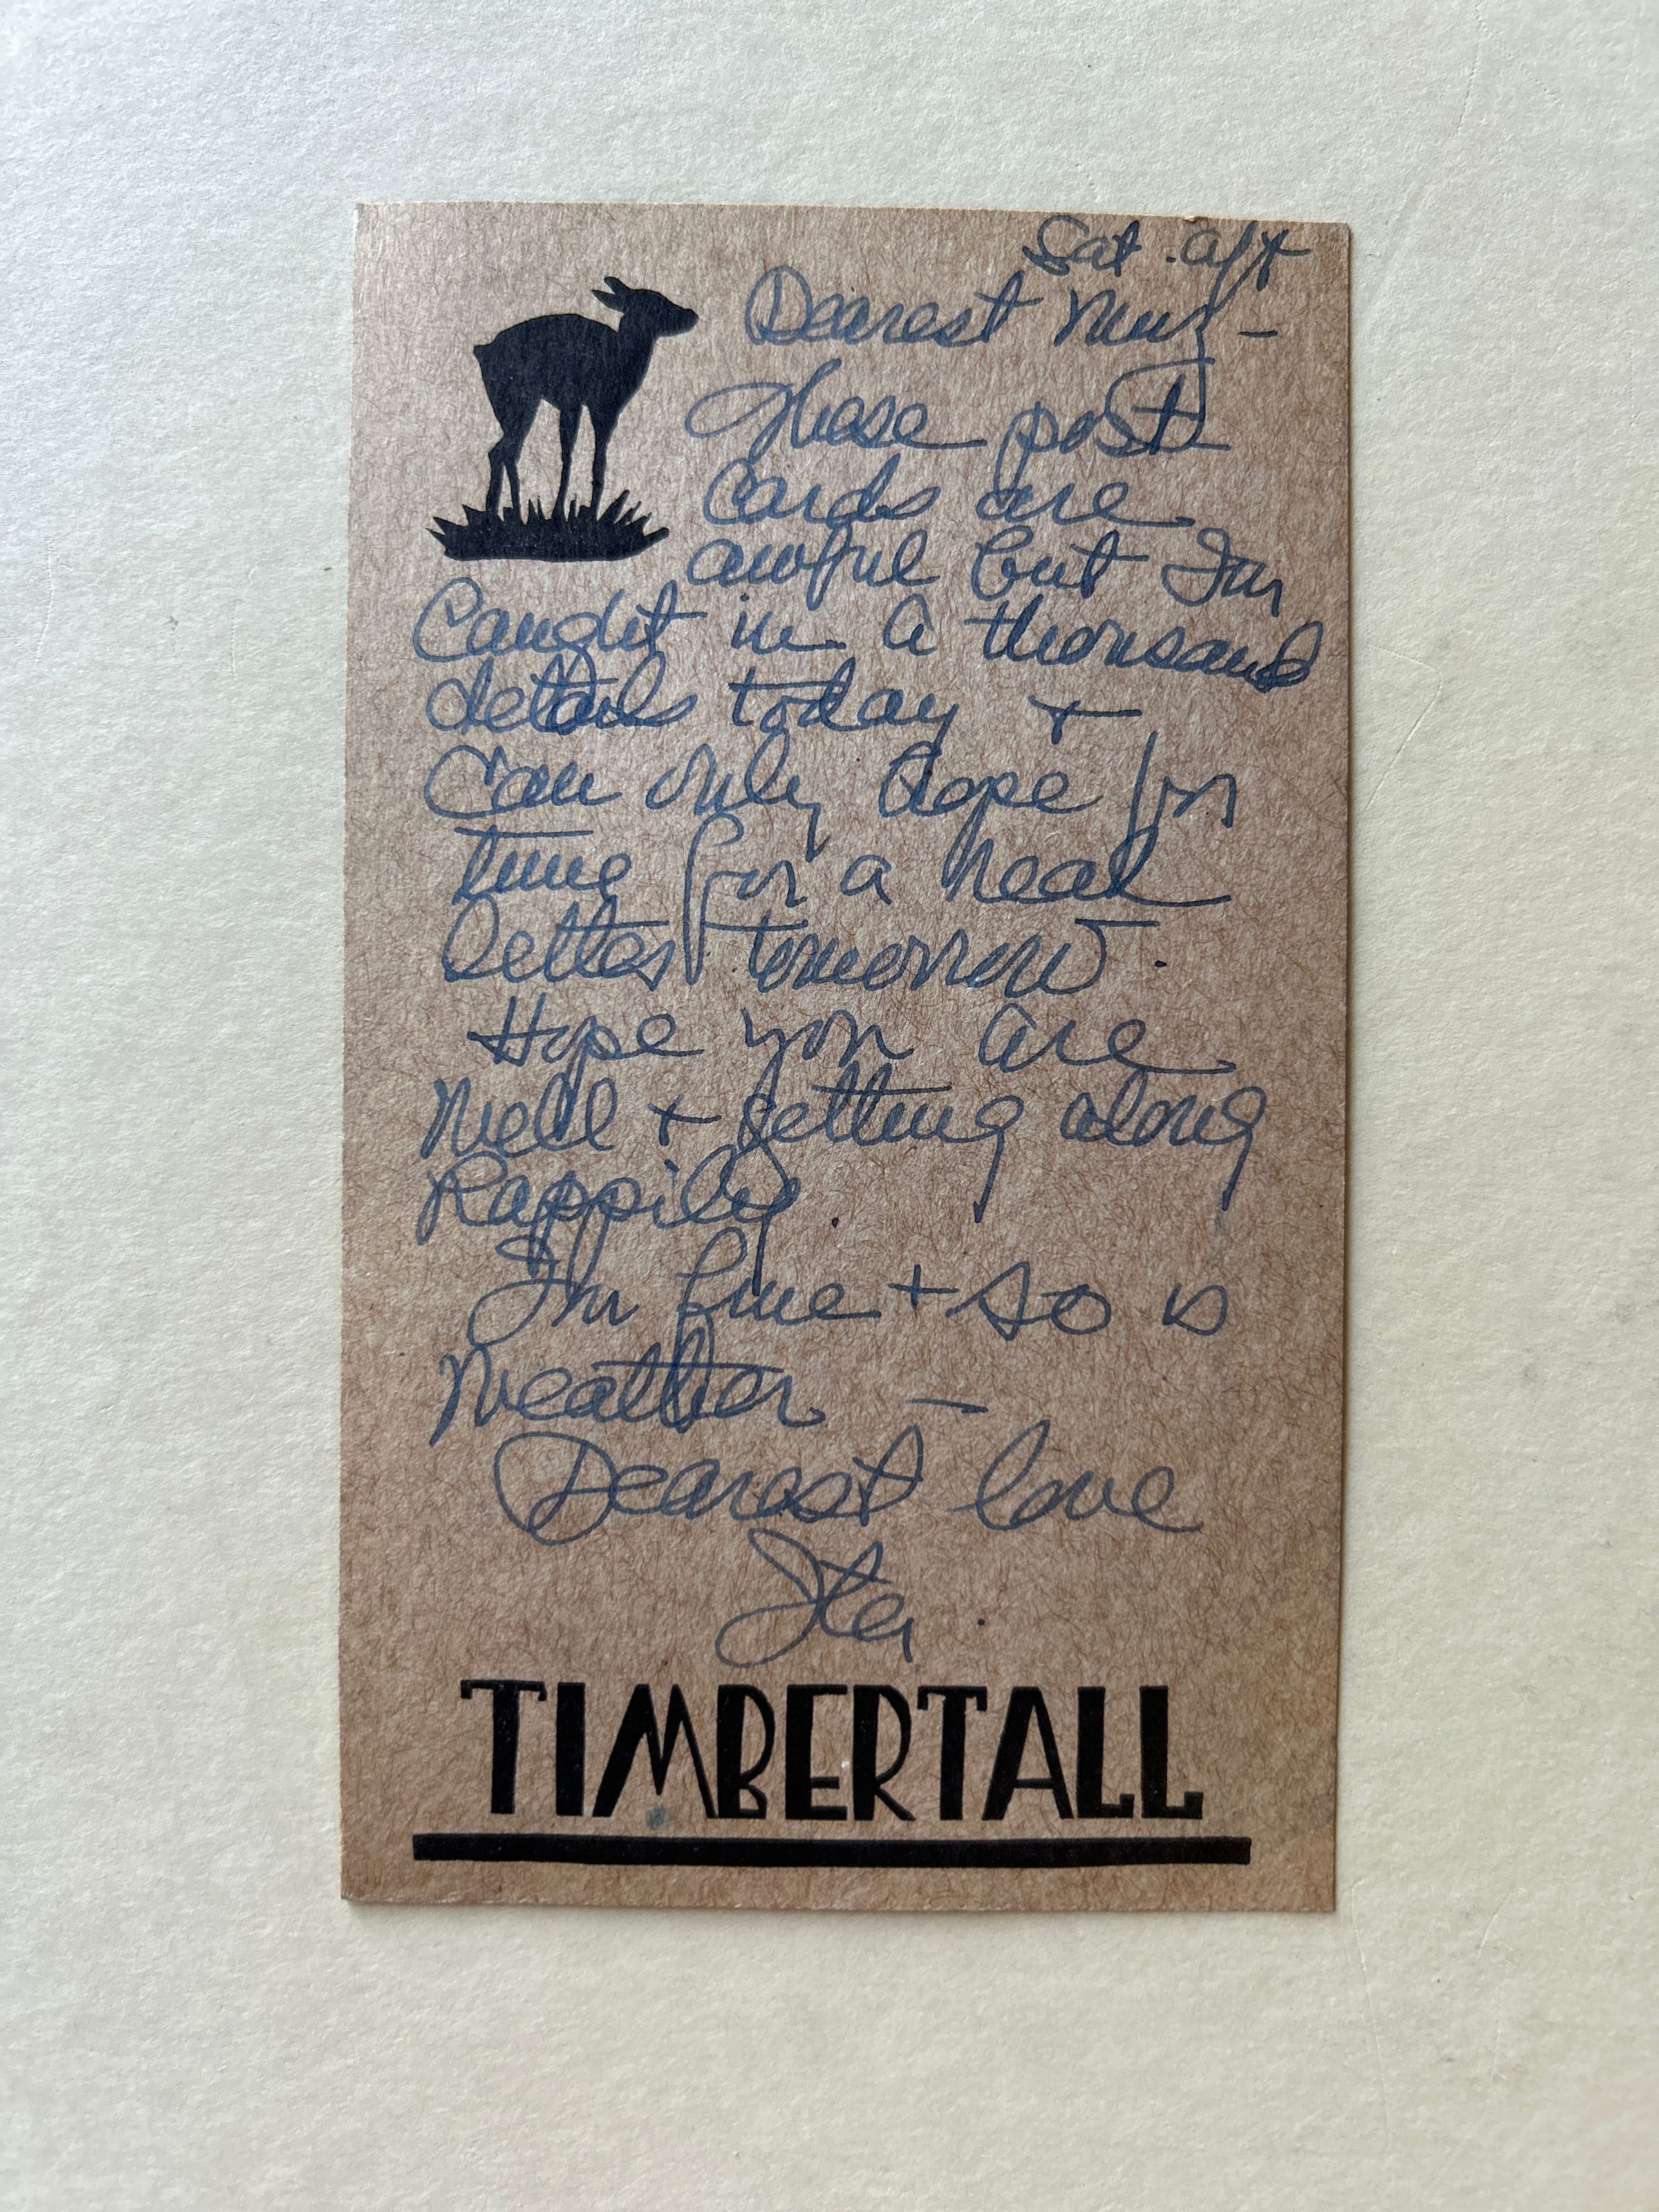 Sat. aft
Dearest Muz –
These post
cards are
awful but Im
caught in a thousand
details today +
can only hope for
time for a real
letter tomorrow.
Hope you are
well + getting along
happily.
Im fine + so is
weather –
Dearest love
Ste.
TIMBERTALL